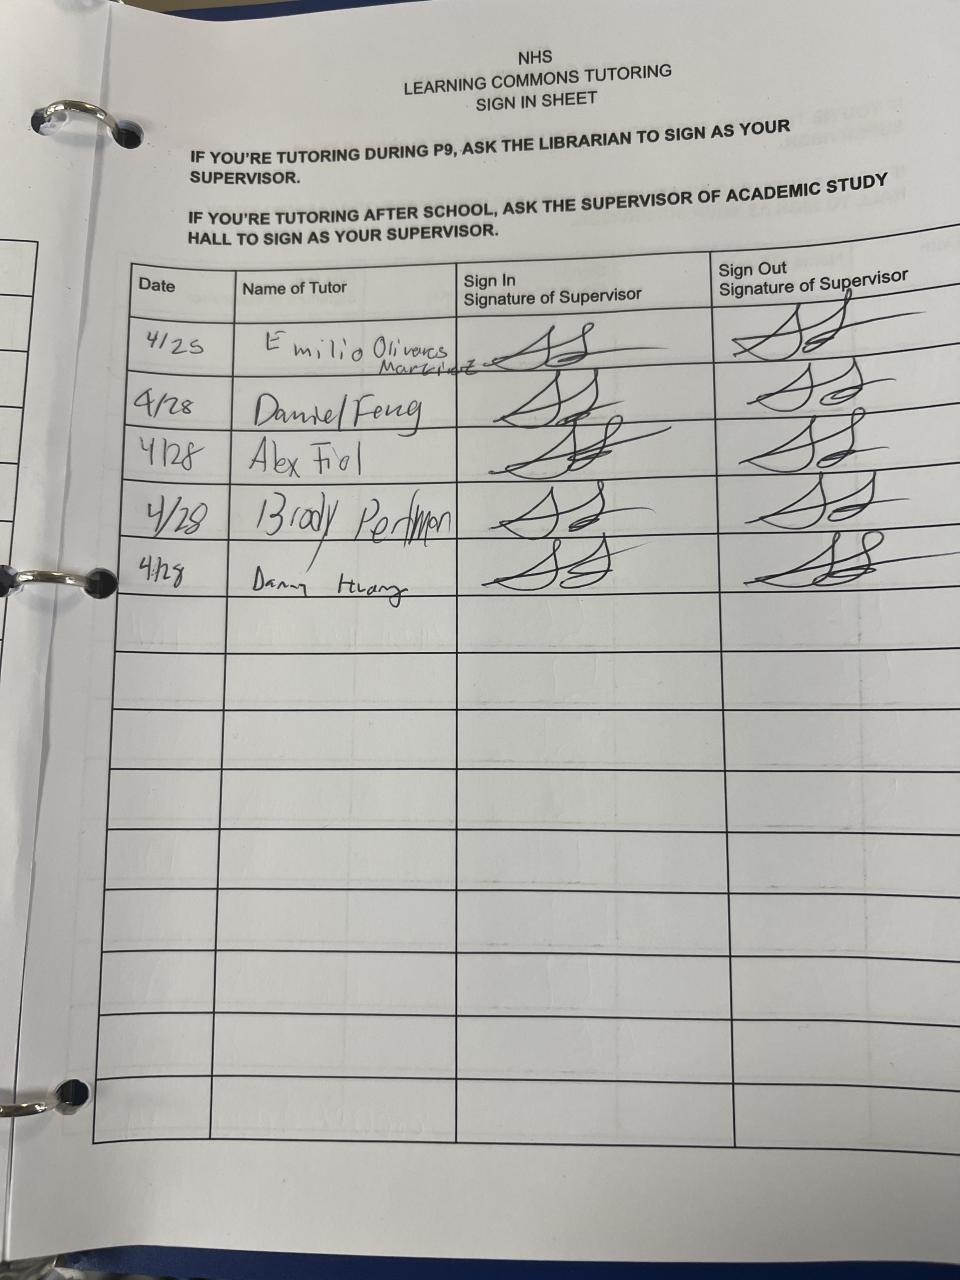 NHS
LEARNING COMMONS TUTORING
SIGN IN SHEET
IF YOU'RE TUTORING DURING P9, ASK THE LIBRARIAN TO SIGN AS YOUR
SUPERVISOR.
IF YOU'RE TUTORING AFTER SCHOOL, ASK THE SUPERVISOR OF ACADEMIC STUDY
HALL TO SIGN AS YOUR SUPERVISOR.
Date
Name of Tutor
Sign In
Signature of Supervisor
Sign Out
Signature of Supervisor
4/25
Emilio Olivares
4/28
Daniel Feng
4/28
Alex Fiol
4/28
Brody Perlman
4/28
Danny Huang